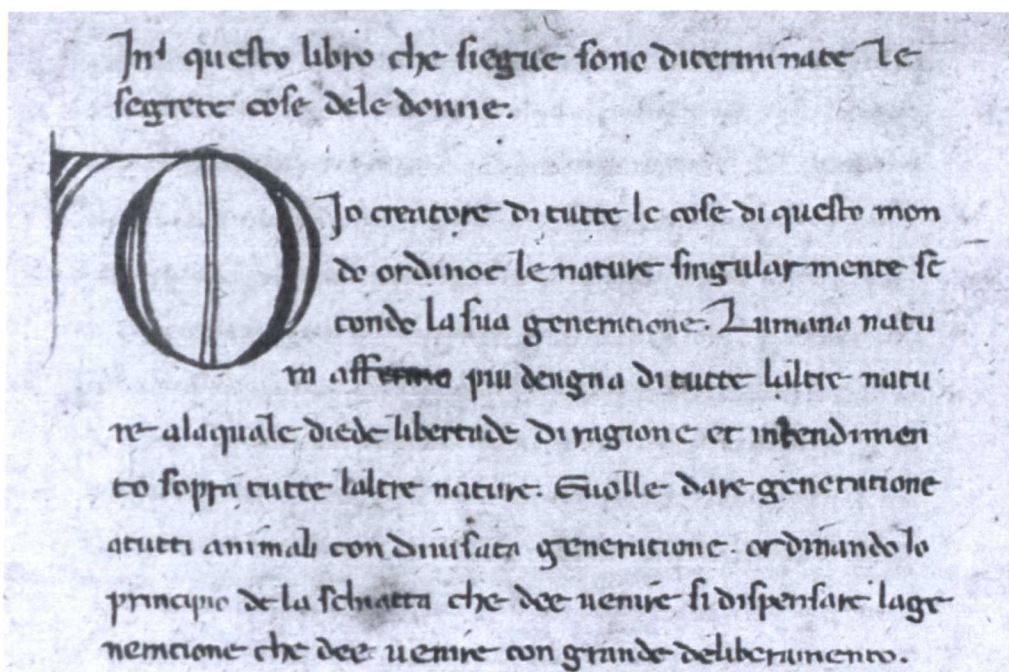 InQ questo libro che siegue sono diterminate le
segrete cose dele donne.
DIo creatore di tutte le cose di questo mon
do ordinoe le nature singular mente se
condo la sua generatione. Lumana natu
ra afferma piu dengna di tutte laltre natu
re ala quale diede libertade di ragione et intendimen
to sopra tutte laltre nature. Euolle dare generatione
atutti animali con diuisata generatione. ordinando lo
principio de la schiatta che dee uenire si dispensare lage
neratione che dee uenire con grande deliberamento.